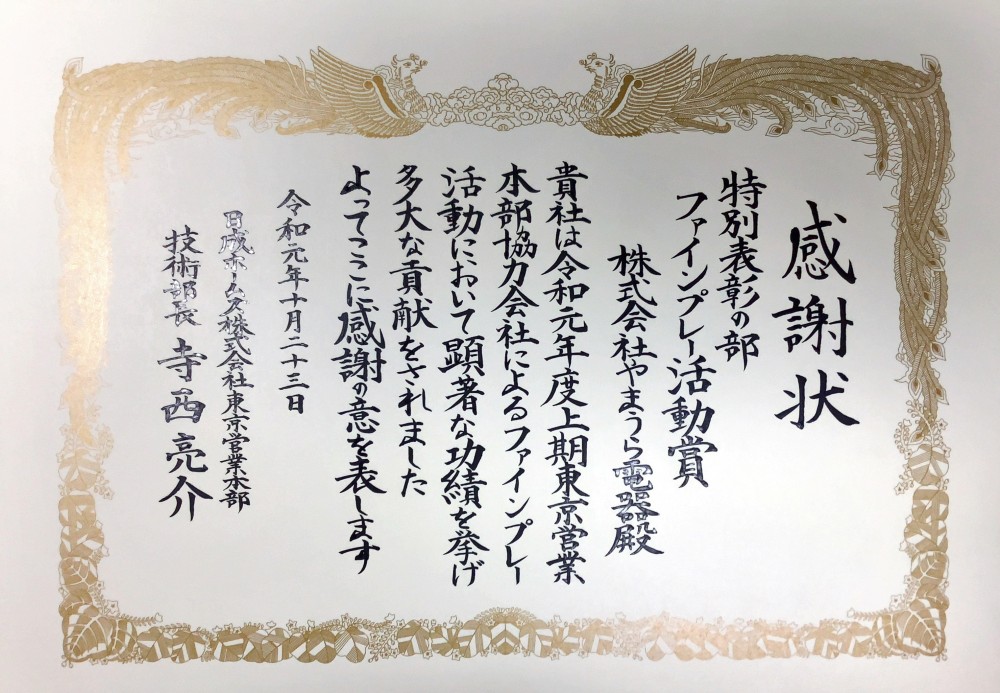 感謝状
特別表彰の部
ファインプレー活動賞
株式会社やまうら電器殿
貴社は令和元年度上期東京営業
本部協力会社によるファインプレー
活動において顕著な功績を挙げ
多大な貢献をされました
よってここに感謝の意を表します
令和元年十月二十三日
日成ホームズ株式会社東京営業本部
技術部長 寺西亮介